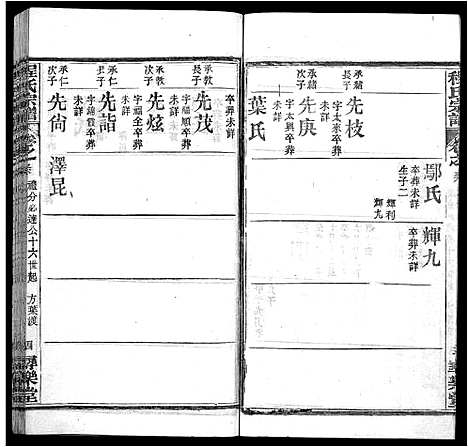 程氏宗譜
承緒
長子
先枝
字太來卒葬
未詳
鄢氏
卒葬未詳
生子二
輝利
輝九
輝九
卒葬未詳
承緒
次子
先庚
字太興卒葬
未詳
葉氏
卒葬未詳
承教
長子
先茂
字福順卒葬
未詳
承教
次子
先炫
字福全卒葬
未詳
承仁
長子
先詣
字錦 卒葬
未詳
承仁
次子
先尙
澤昆
程氏宗譜
禮分必達公十六世起
方葉漢
四
樂堂